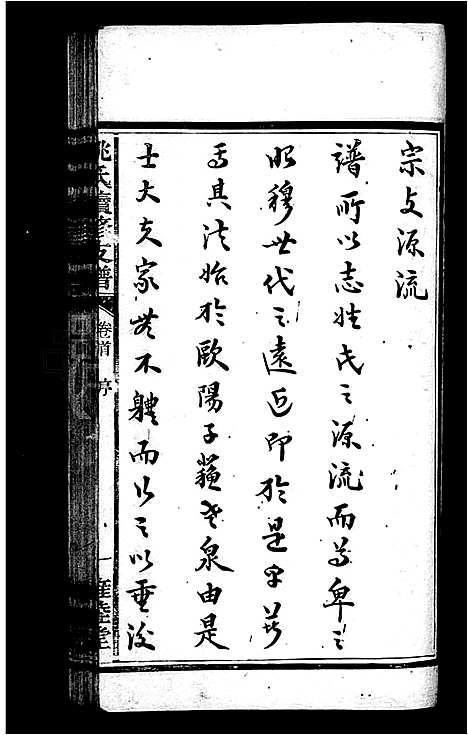 宗支源流
譜所以志姓氏之源流而尊卑之
昭穆世代之遠近即於是乎著
焉其法始於歐陽子蘇老泉由是
士大夫家無不體而行之以垂後
姚氏續修支譜 卷首 序 一 睦堂